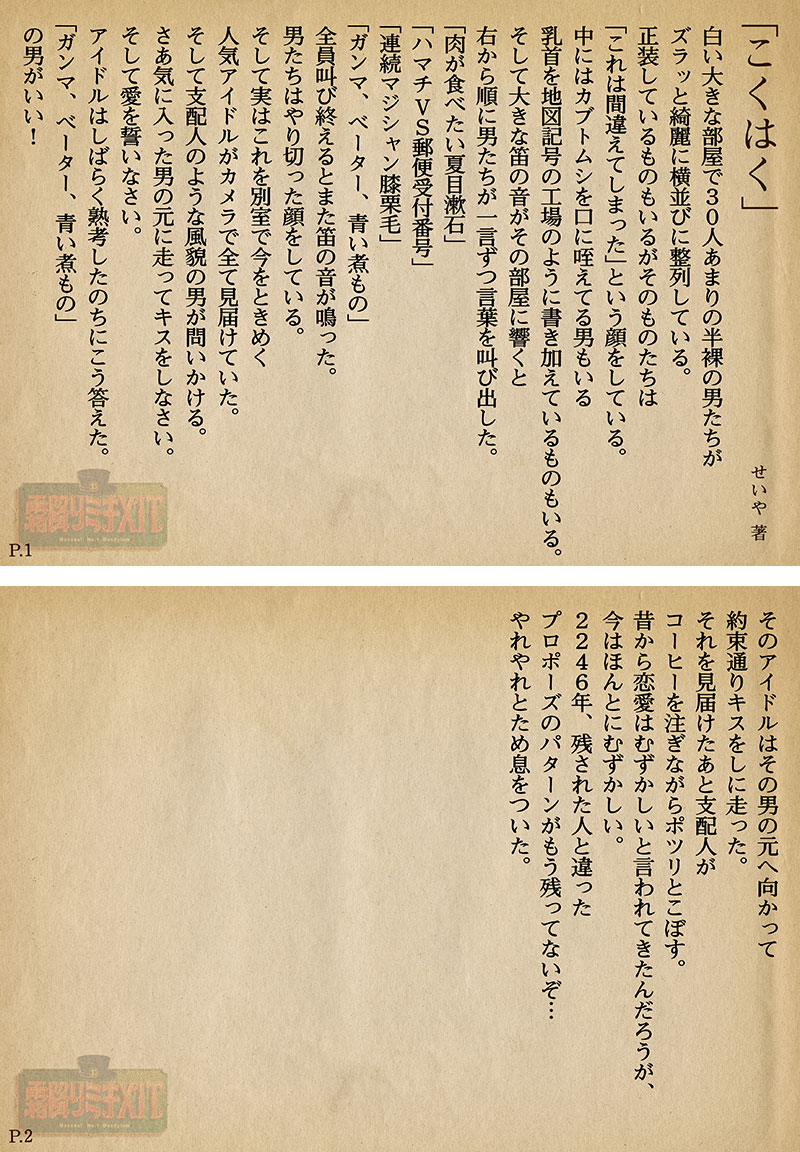 「こくはく」
せいや 著
白い大きな部屋で３０人あまりの半裸の男たちが
ズラッと綺麗に横並びに整列している。
正装しているものもいるがそのものたちは
「これは間違えてしまった」という顔をしている。
中にはカブトムシを口に咥えてる男もいる
乳首を地図記号の工場のように書き加えているものもいる。
そして大きな笛の音がその部屋に響くと
右から順に男たちが一言ずつ言葉を叫び出した。
「肉が食べたい夏目漱石」
「ハマチＶＳ郵便受付番号」
「連続マジシャン膝栗毛」
「ガンマ、ベーター、青い煮もの」
全員叫び終えるとまた笛の音が鳴った。
男たちはやり切った顔をしている。
そして実はこれを別室で今をときめく
人気アイドルがカメラで全て見届けていた。
そして支配人のような風貌の男が問いかける。
さあ気に入った男の元に走ってキスをしなさい。
そして愛を誓いなさい。
アイドルはしばらく熟考したのちにこう答えた。
「ガンマ、ベーター、青い煮もの」
の男がいい！
霜降りミチXIT
P.1
そのアイドルはその男の元へ向かって
約束通りキスをしに走った。
それを見届けたあと支配人が
コーヒーを注ぎながらポツリとこぼす。
昔から恋愛はむずかしいと言われてきたんだろうが、
今はほんとにむずかしい。
２２４６年、残された人と違った
プロポーズのパターンがもう残ってないぞ…
やれやれとため息をついた。
霜降りミチXIT
P.2